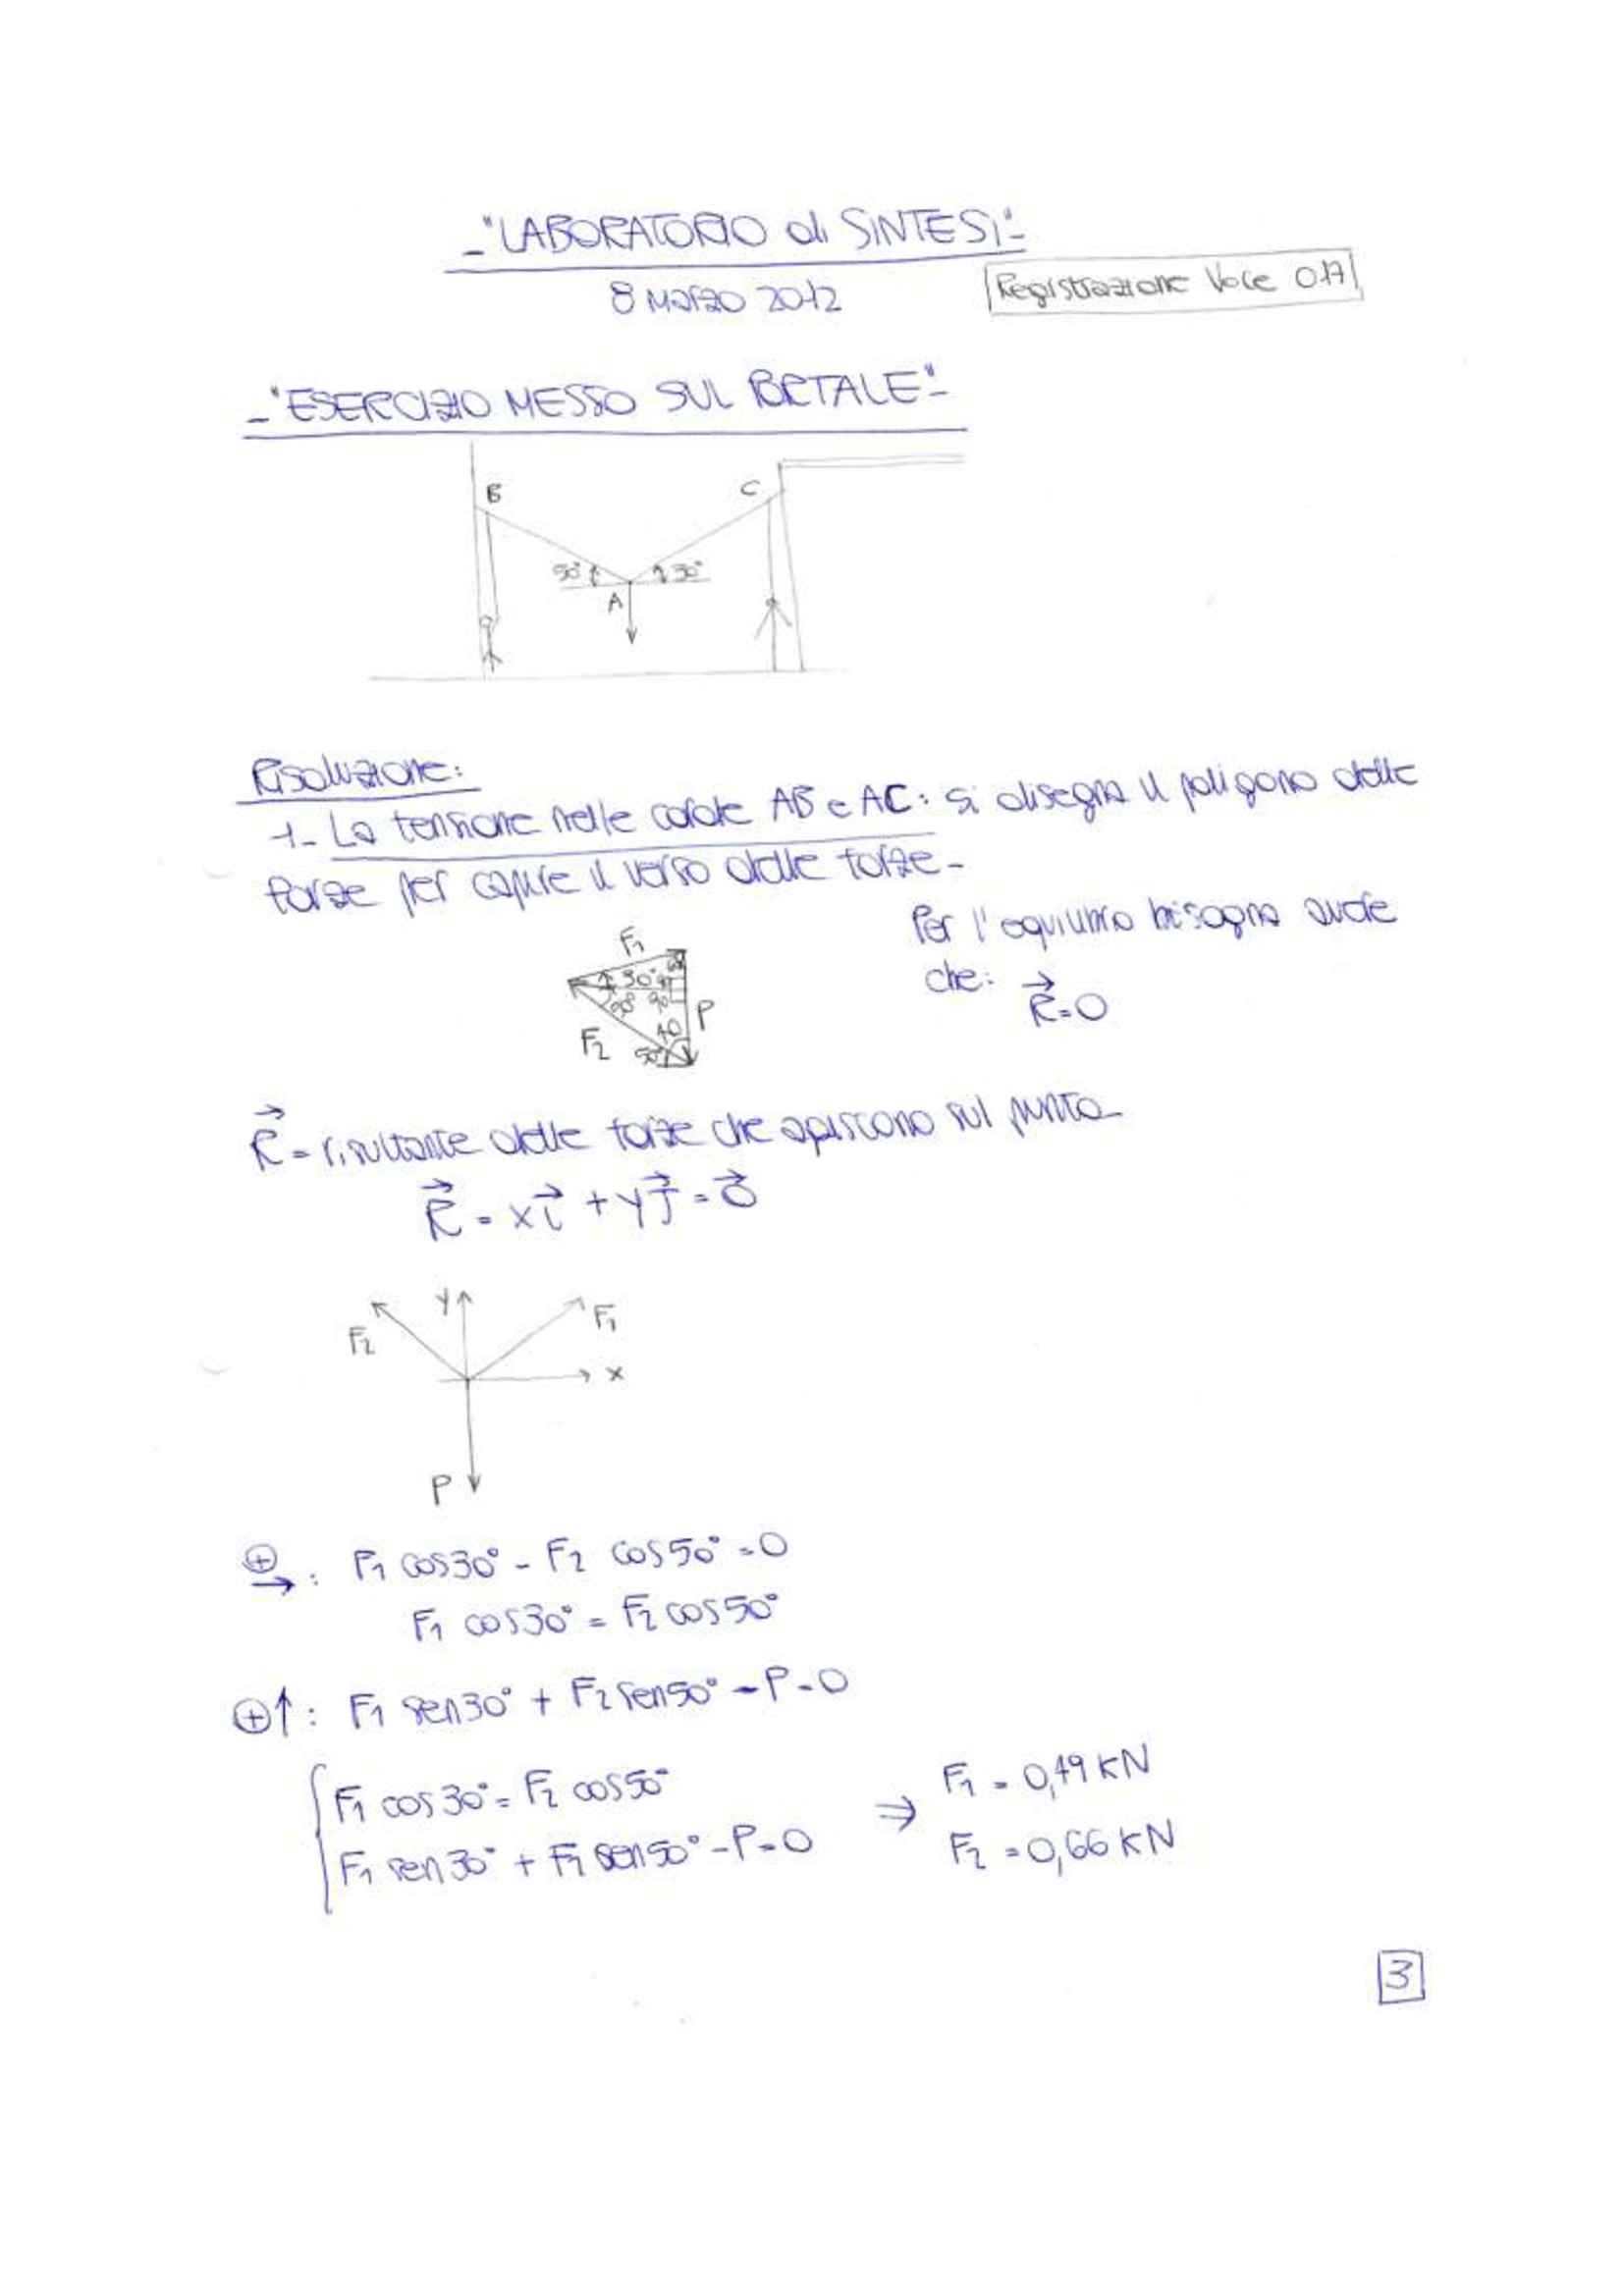 -"LABORATORIO di SINTESI"-
8 MARZO 2012
Registrazione Voce 017
-"ESERCIZIO MESSO SUL PORTALE"-
B
C
50°
30°
A
Risoluzione:
1- La tensione nelle corde AB e AC: si disegna il poligono delle
forze per capire il verso delle forze-
Per l'equilibrio bisogna avere
che: R⃗=0
F₁
30°
60
50°
90
P
F₂
40
50°
R⃗ = risultante delle forze che agiscono sul punto-
R⃗ = xi⃗ + yj⃗ = 0⃗
F₂
y
F₁
x
P
⊕→: F₁ cos30° - F₂ cos50° = 0
F₁ cos30° = F₂ cos50°
⊕↑: F₁ sen30° + F₂ sen50° - P = 0
F₁ cos30° = F₂ cos50°
F₁ sen30° + F₂ sen50° - P = 0
⇒
F₁ = 0,49 KN
F₂ = 0,66 KN
3